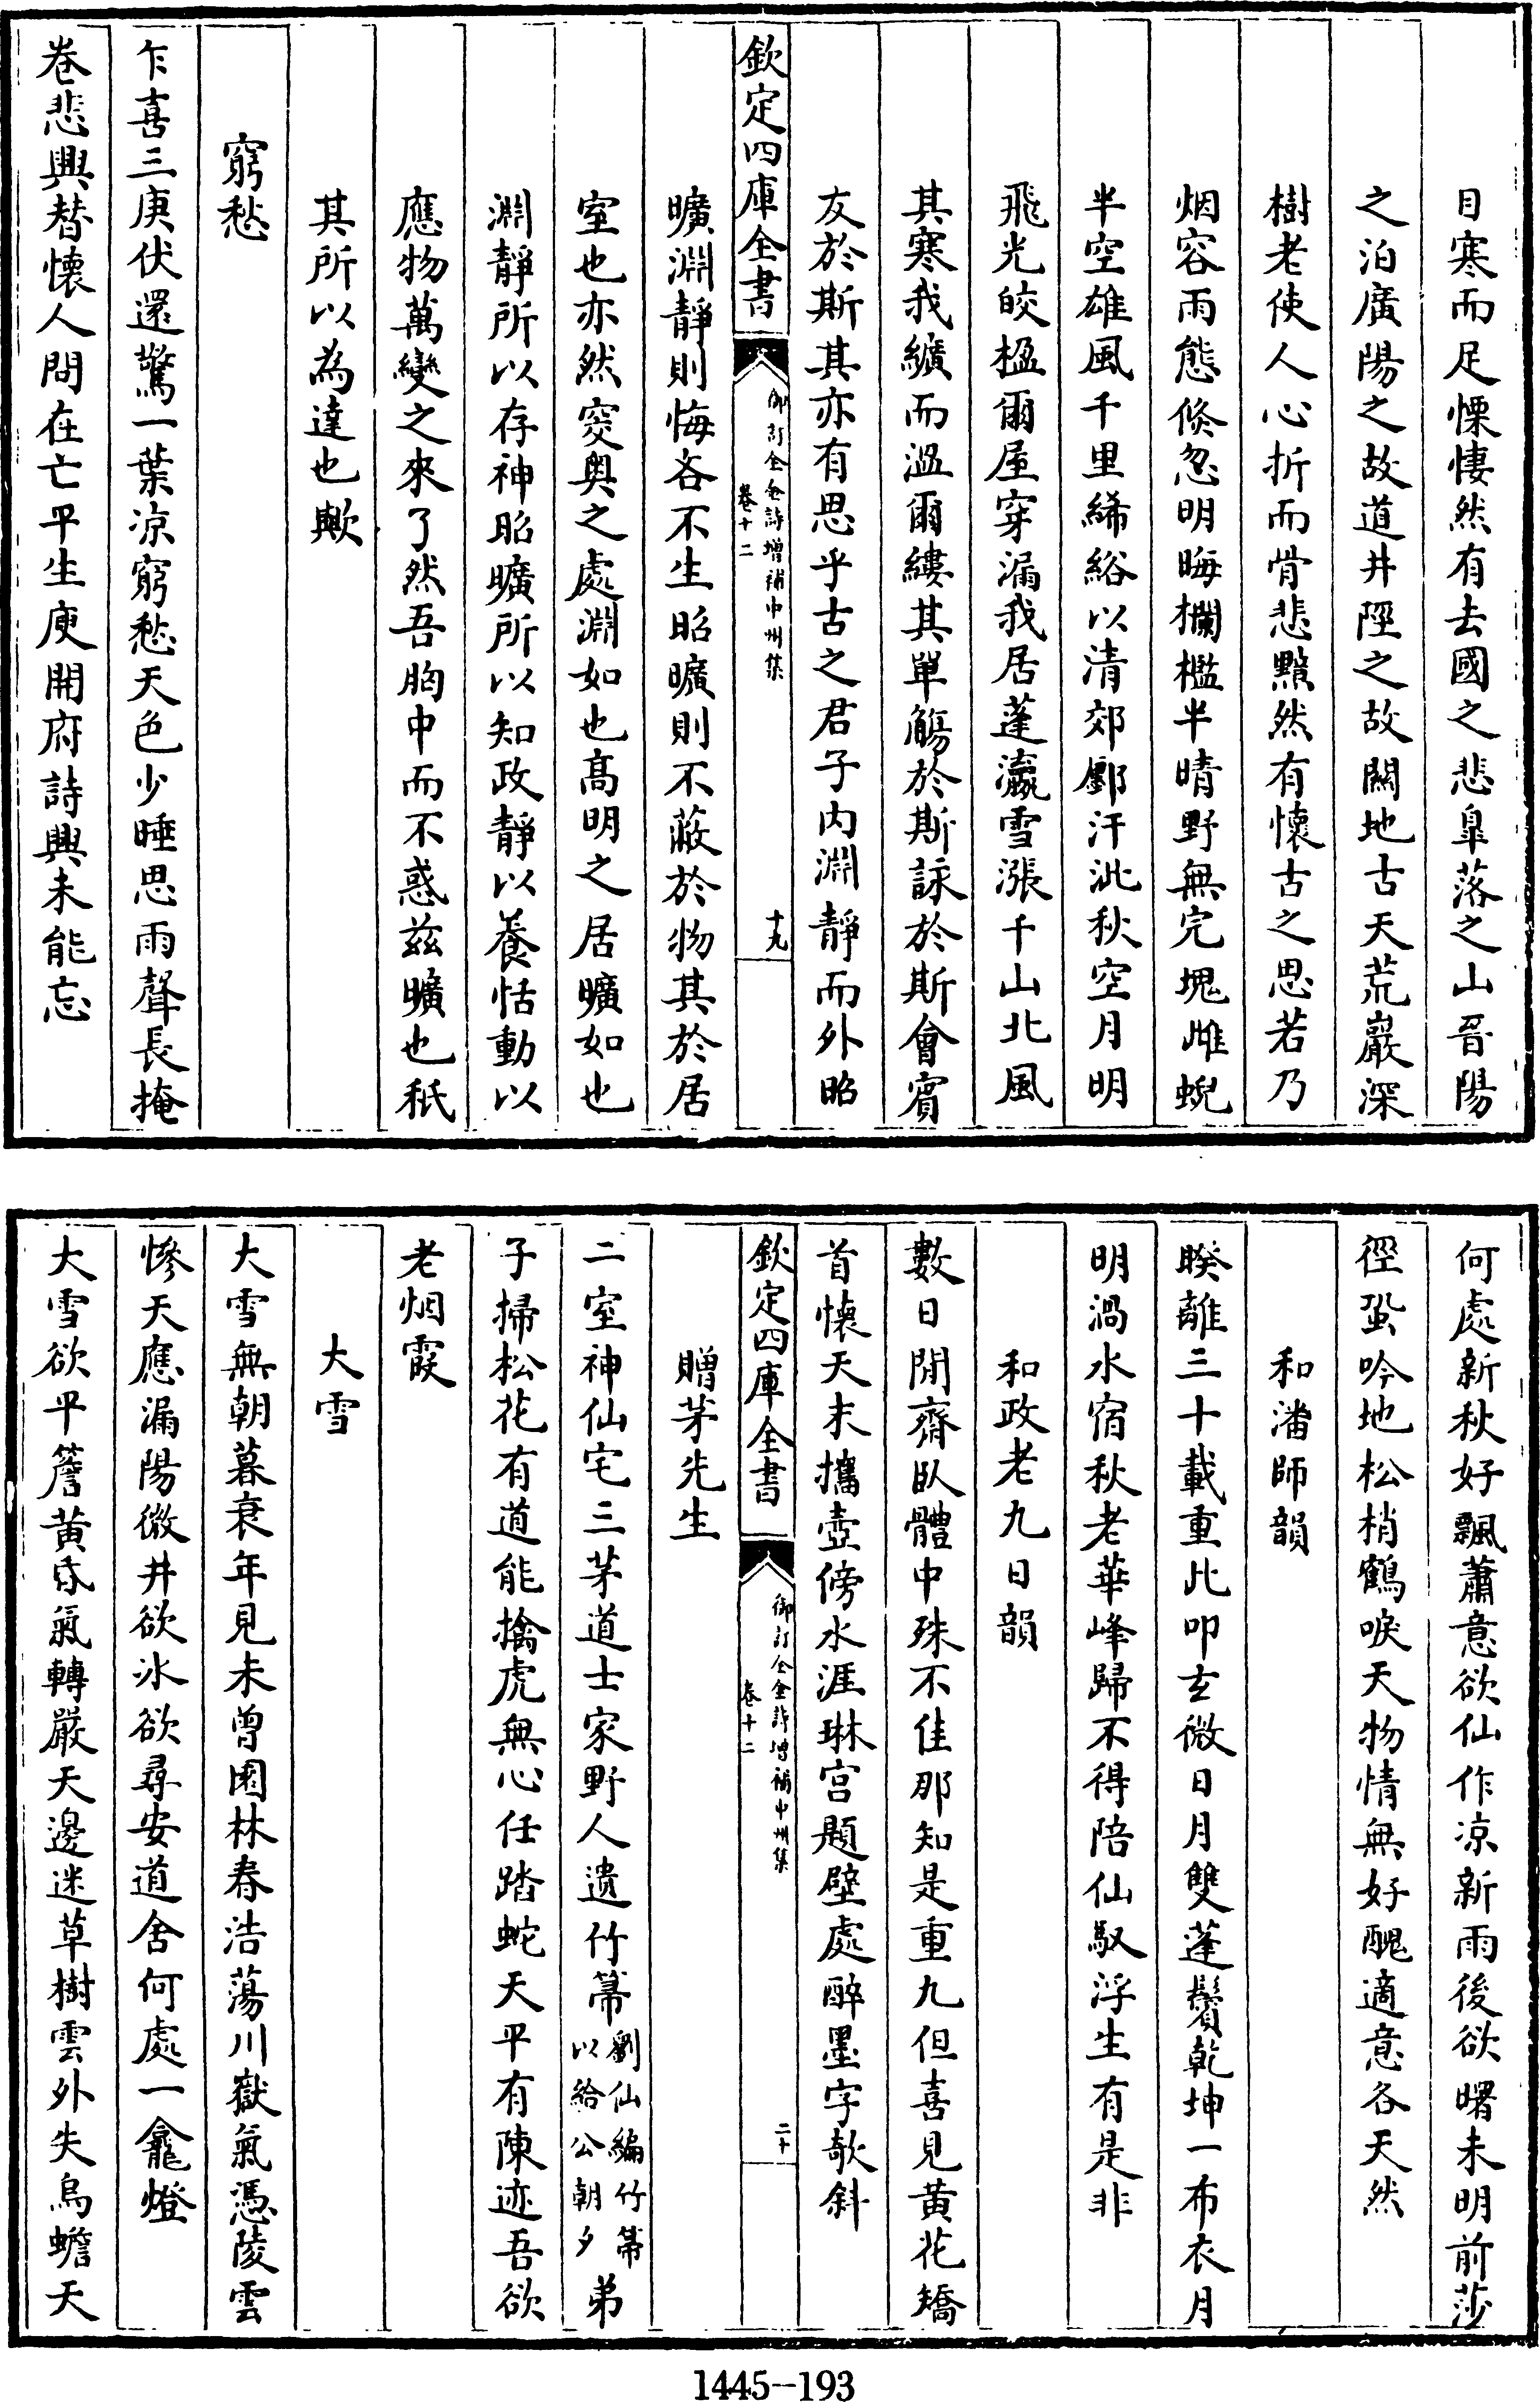 目寒而足慄悽然有去國之悲臯落之山晉陽
之泊廣陽之故道井陘之故關地古天荒巖深
樹老使人心折而骨悲黯然有懷古之思若乃
烟容雨態倏忽明晦欄檻半晴野無完塊雌蜺
半空雄風千里絺綌以清郊鄽汗泚秋空月明
飛光皎楹爾屋穿漏我居蓬瀛雪漲千山北風
其寒我纊而溫爾縷其單觴於斯詠於斯會賓
友於斯其亦有思乎古之君子内淵靜而外昭
欽定四庫全書
御訂全金詩增補中州集
卷十二
十九
曠淵靜則悔吝不生昭曠則不蔽於物其於居
室也亦然窔奥之處淵如也髙明之居曠如也
淵靜所以存神昭曠所以知政靜以養恬動以
應物萬變之來了然吾胸中而不惑兹曠也秖
其所以為達也歟
窮愁
乍喜三庚伏還驚一葉凉窮愁天色少睡思雨聲長掩
卷悲興替懷人問在亡平生庾開府詩興未能忘
何處新秋好飄蕭意欲仙作凉新雨後欲曙未明前莎
徑蛩吟地松梢鶴唳天物情無好醜適意各天然
和潘師韻
睽離三十載重此叩玄微日月雙蓬鬢乾坤一布衣月
明渦水宿秋老華峰歸不得陪仙馭浮生有是非
和政老九日韻
數日閒齋臥體中殊不佳那知是重九但喜見黄花矯
首懷天末攜壺傍水涯琳宫題壁處醉墨字欹斜
欽定四庫全書
御訂全金詩增補中州集
卷十二
二十
贈茅先生
二室神仙宅三茅道士家野人遺竹箒劉仙編竹箒以給公朝夕弟
子掃松花有道能擒虎無心任踏蛇天平有陳迹吾欲
老烟霞
大雪
大雪無朝暮衰年見未曾園林春浩蕩川嶽氣憑陵雲
慘天應漏陽微井欲冰欲尋安道舍何處一龕燈
大雪欲平簷黄昏氣轉嚴天邊迷草樹雲外失烏蟾天
1445--193